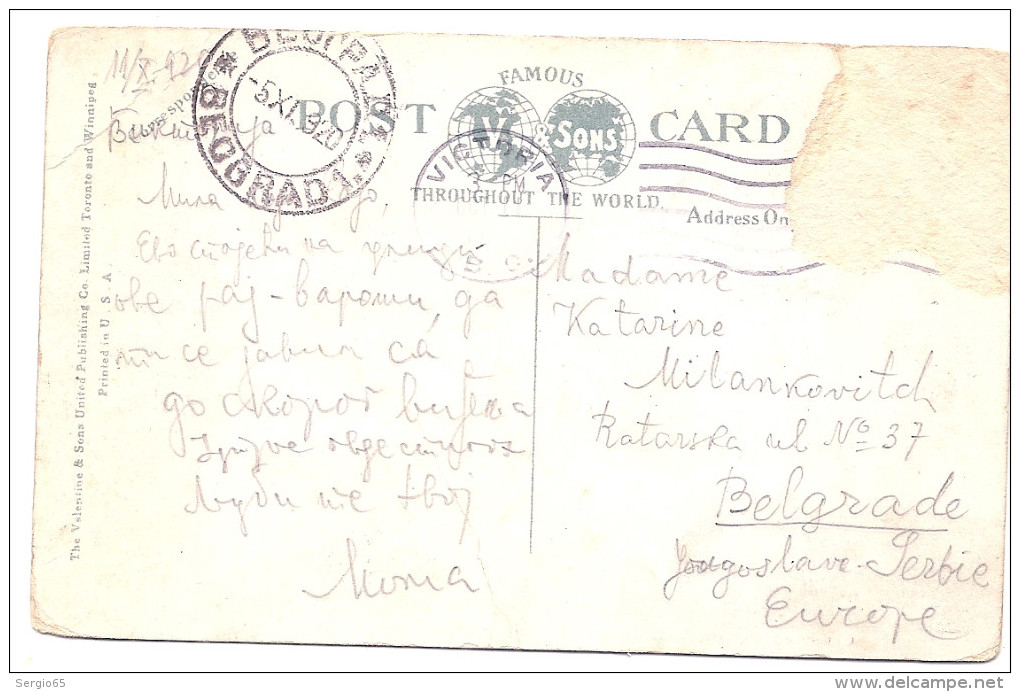 11/X 920
Викторија
POST CARD
FAMOUS
V & SONS
THROUGHOUT THE WORLD.
Address On
BEOGRAD 1
-5.XI.
VICTORIA
PM
B.C.
Мила
Ево стојећи на улици
ове рај-вароши, да
ти се јавим са
до скорог виђења
ти
Љуби те твој
Madame
Katarine
Milankovitch
Ratarska ul No 37
Belgrade
Jougoslave-Serbie
Europe
The Valentine & Sons United Publishing Co. Limited Toronto and Winnipeg.
Printed in U. S. A.
Sergio65
www.delcampe.net